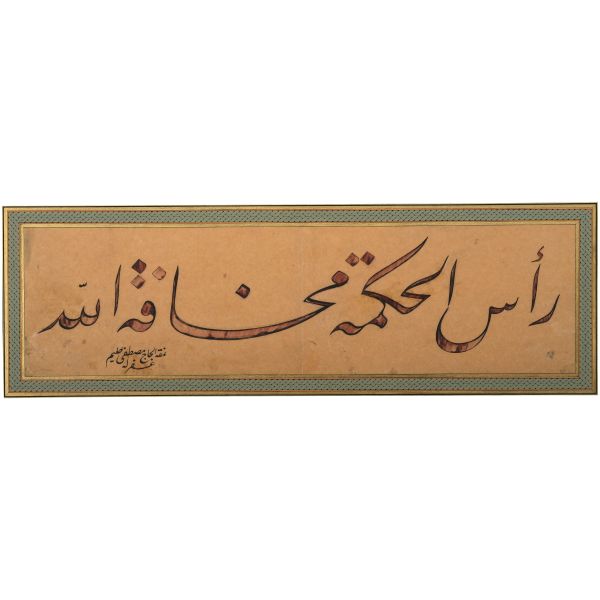 رأس الحكمة مخافة الله
نمقه الحاج مصطفى حليم
غفر له